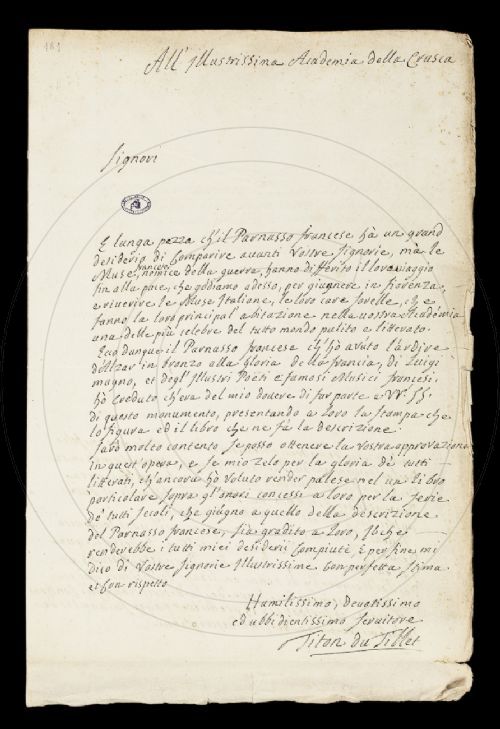 181
All' Illustrissima Academia della Crusca
Signori
E lunga pezza ch'il Parnasso francese hà un grand
desiderio di Comparire avanti Vostre Signorie, mà le
Muse francesi, nimice della guerra, hanno differito il loro viaggio
fin alla pace, che godiamo adesso, per giugnere in fiorenza,
e riverire le Muse Italione, le loro care sorelle, ch'e
fanno la loro principal' abitazione nella vostra Academia
una delle più celebre del tutto mondo pulito e litterato.
Ecco dunque il Parnasso francese ch'hò avuto l'ardire
d'Alzar in bronzo alla Gloria della francia, di Luigi
magno, et degl' Illustri Poëti e famosi Musici francesi,
hò Creduto ch'era del mio dovere di far parte a VV. SS.
di questo monumento, presentando a Loro la stampa che
lo figura ed il libro che ne fà la descrizione.
Sarò molto contento se posso ottenere la vostra approvazione
in quest' opera, e se mio zelo per la gloria de' tutti
litterati, ch'ancora hò voluto render palese nel un libro
particolare sopra gl'onori concessi a loro per la serie
de' tutti secoli, che giugno a quello della descrizione
del Parnasso francese, sia gradito a Loro, Il che
renderebbe i tutti miei desiderii Compiuti, E per fine mi
dico di Vostre Signorie Illustrissime Con perfetta stima
et Con rispetto
Humilissimo, Devotissimo
ed ubbidientissimo servitore
Titon du Tillet